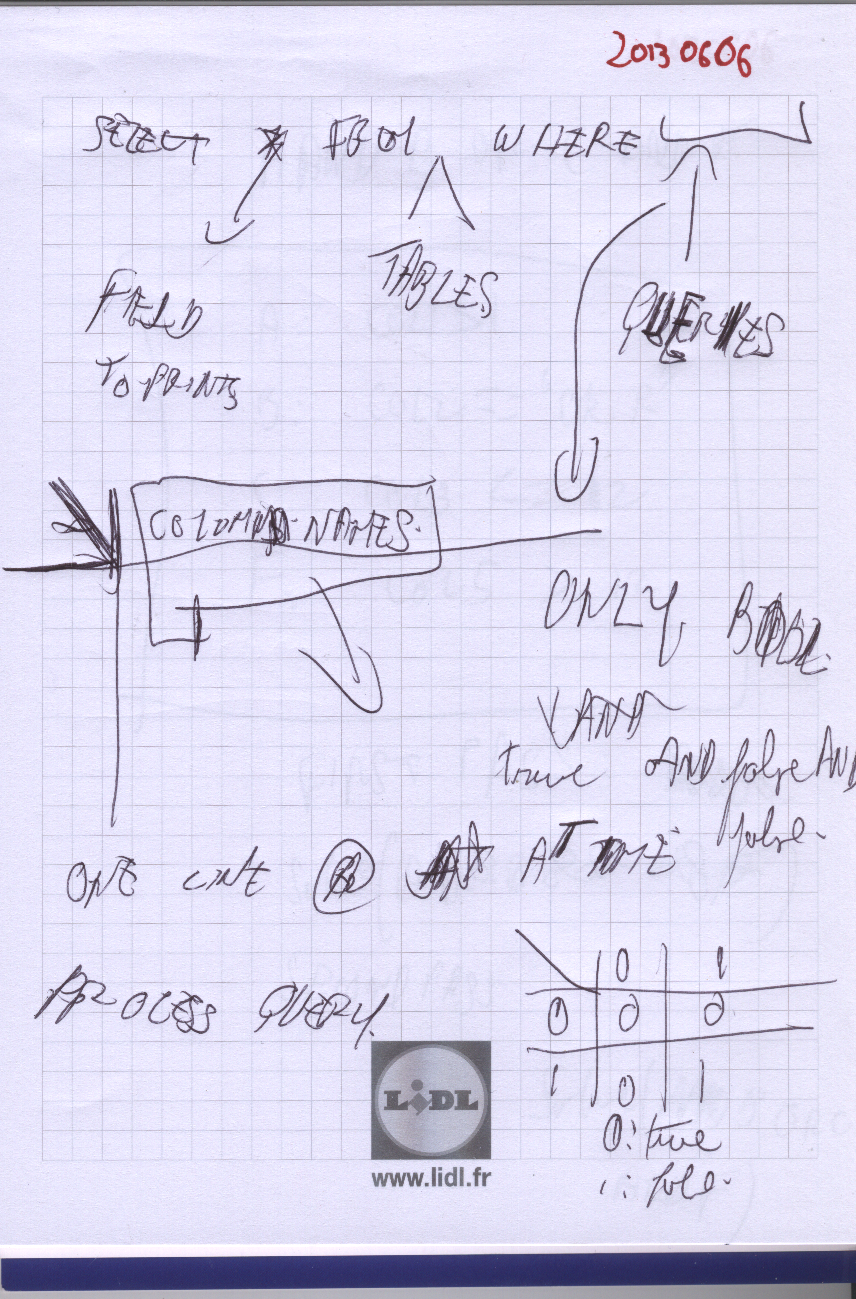 20130606
SELECT * FROM WHERE
TABLES
QUERIES
FIELD
TO PRINTS
COLOMNS NAMES.
ONLY BOOL
AND
true AND false AND
false.
ONE LINE AT TIME
PROCESS QUERY.
0 1
0 0 0
1 0 1
0: true
1: false.
LIDL
www.lidl.fr